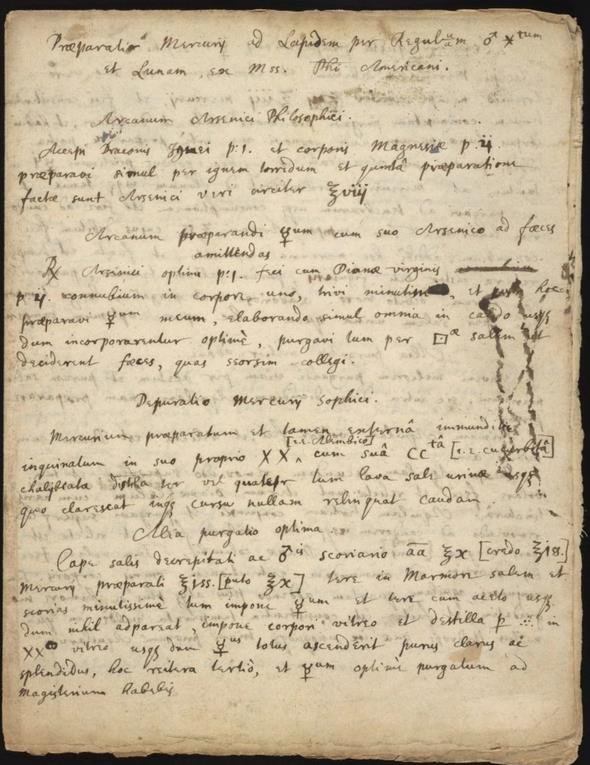 Præparatio Mercurij ad Lapidem per Regulum ♂ ☿tum
et Lunam, ex Mss. Phi Americani.
Arcanum Arsenici Philosophici.
Accepi Draconis Ignei p:1. et corporis Magnesiæ p.ij
præparavi simul per ignem torridum et quintâ præparatione
facta sunt Arsenici veri circiter ℥viij
Arcanum præparandi ☿um cum suo Arsenico ad fæces
amittendas
℞ Arsenici optimi p:1. feci cum Dianæ virginis
p.ij. connubium in corpore uno, trivi minutim, et hoc
præparavi ☿um meum, elaborando simul omnia in usqȝ
dum incorporarentur optimè, purgavi tum per salem ut
deciderent fæces, quas seorsim collegi.
Depuratio Mercurij Sophici.
Mercurium præparatum et tamen externâ immunditie
[i.e. Alembico]
inquinatum in suo proprio XX, cum suâ CCtâ [i.e. cucurbitâ]
chalybeata distilla ter vel quater tum lava sale urinæ usqȝ
quo clarescat inqȝ cursu nullam relinquat caudam.
Alia purgatio optima
Cape salis decrepitati ac ♂is scoriarum āā ℥x [credo ℥jss.]
Mercurij præparati ℥jss. [puto ℥x] tere in Marmore salem et
scorias minutissimè tum impone ☿um et tere cum aceto usqȝ
dum nihil adpareat, impone corpori vitreo et destilla p ∴ in
XXco vitreo usqȝ dum ☿us totus ascenderit purus clarus ac
splendidus, hoc reitera tertiò, et ☿um optimè purgatum ad
magisterium habebis